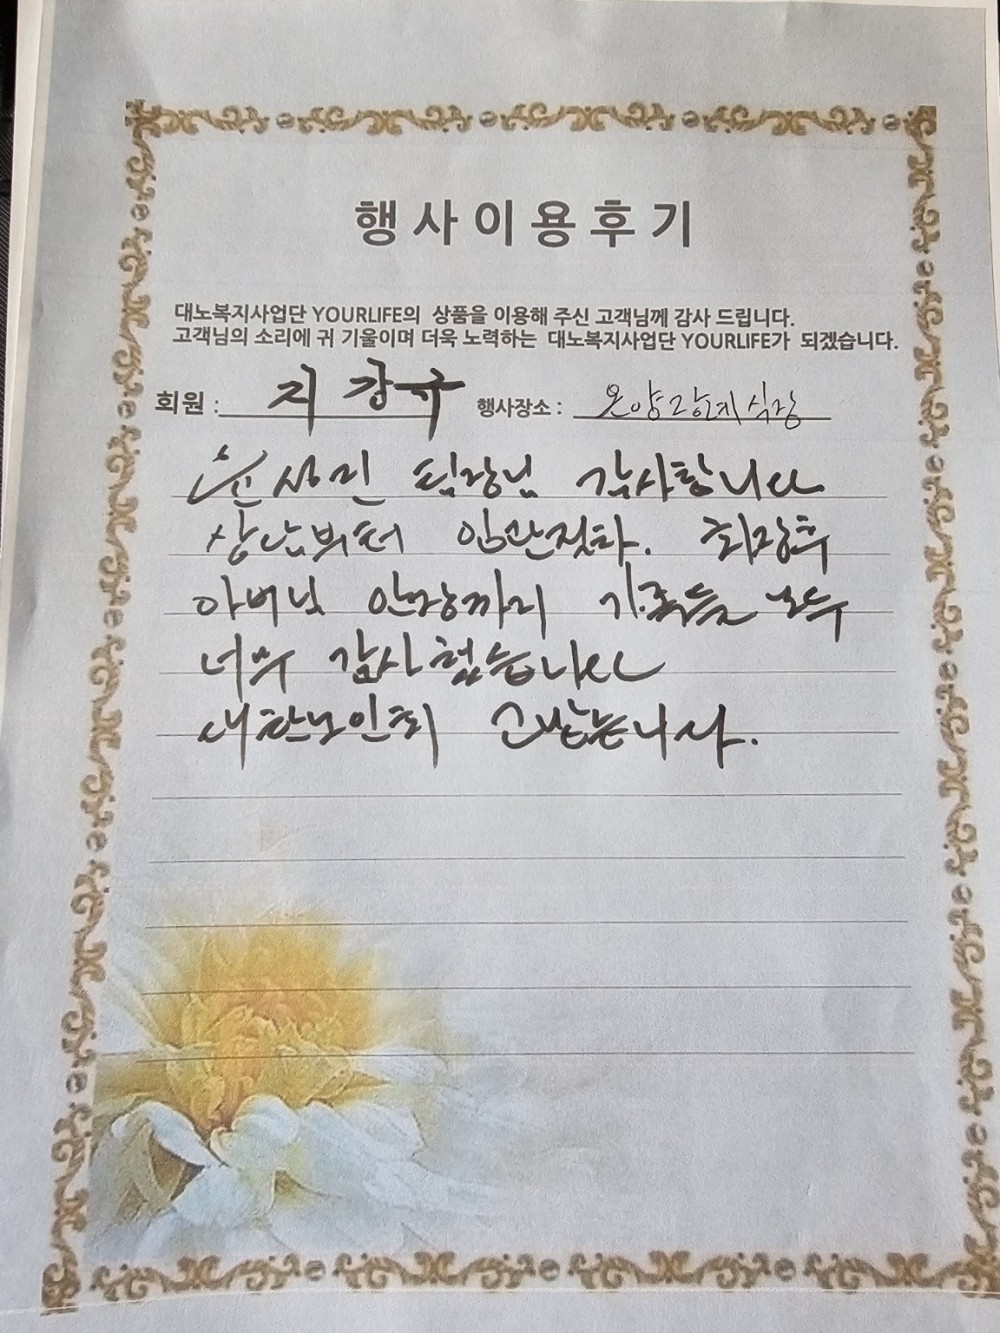 행사이용후기
대노복지사업단 YOURLIFE의 상품을 이용해 주신 고객님께 감사 드립니다.
고객님의 소리에 귀 기울이며 더욱 노력하는 대노복지사업단 YOURLIFE가 되겠습니다.
회원 : 지강구 행사장소 : 온양장례식장
윤상민 팀장님 감사합니다
상담부터 입관절차. 화장후
아버님 안장까지 가족들 모두
너무 감사했습니다
대한노인회 고맙습니다.